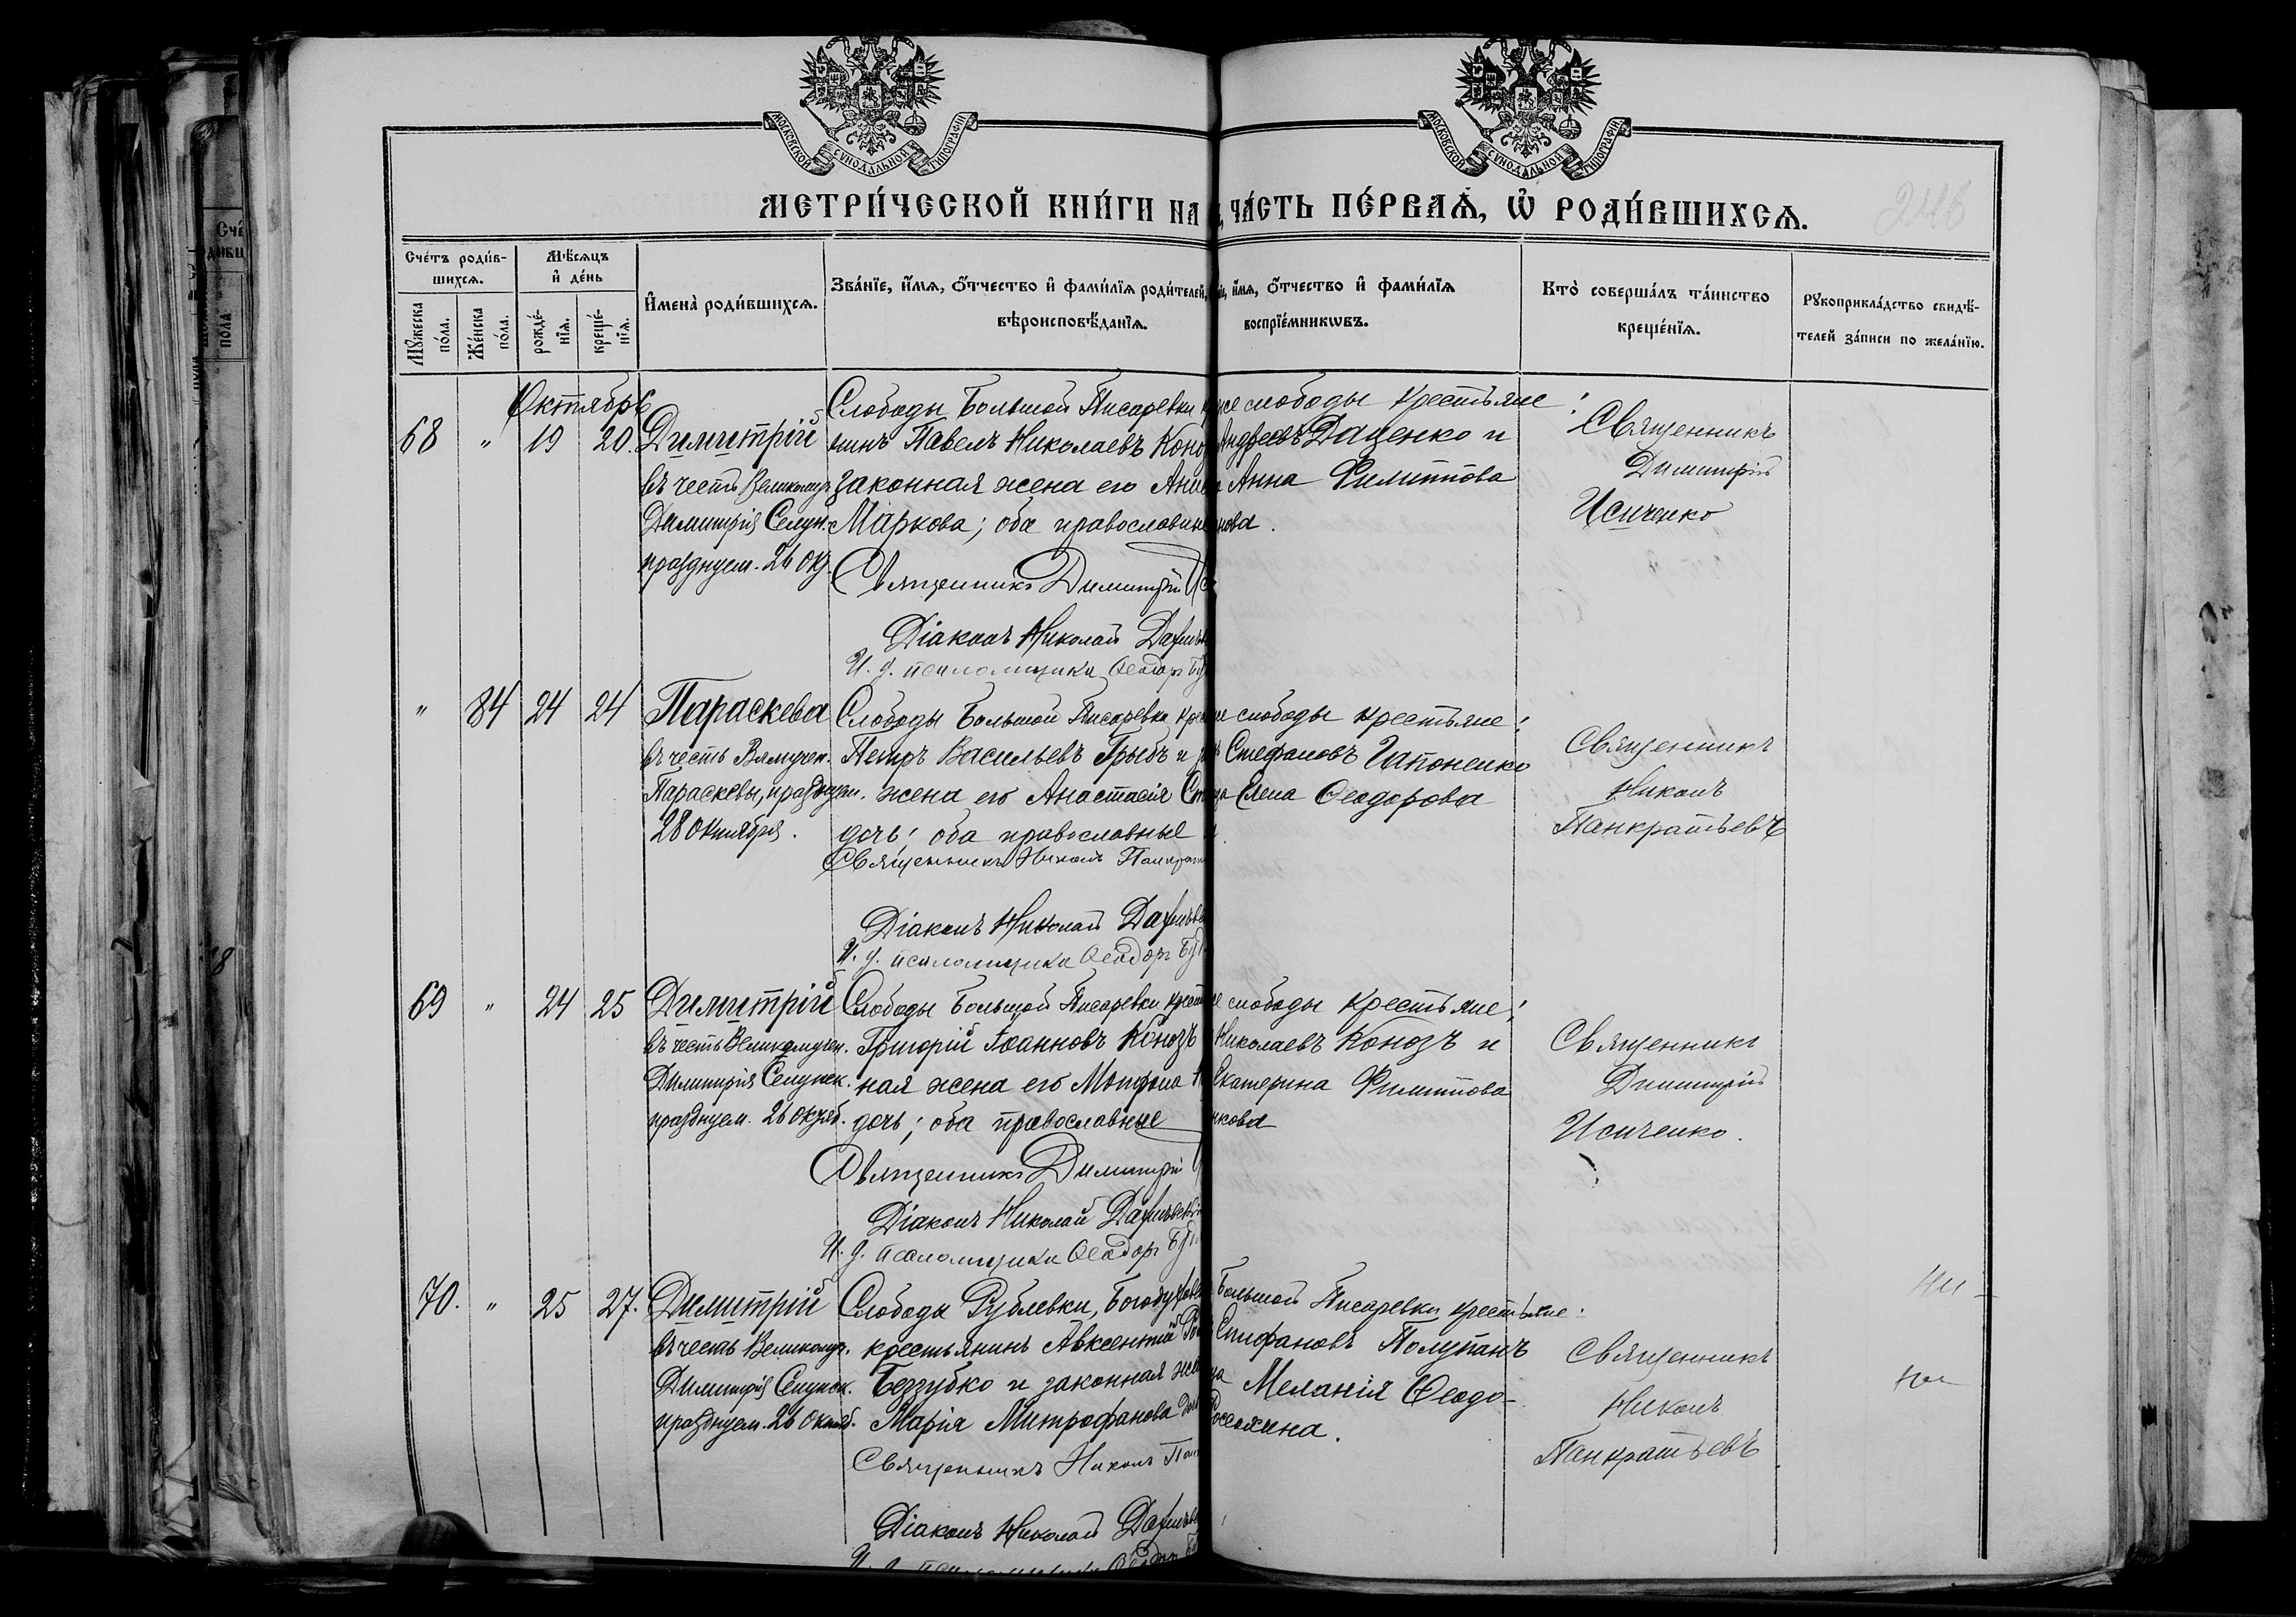 МОСКОВСКОЙ СѴНОДАЛЬНОЙ ТИПОГРАФІИ
МОСКОВСКОЙ СѴНОДАЛЬНОЙ ТИПОГРАФІИ
МЕТРИ́ЧЕСКОЙ КНИ́ГИ НА ЧА́СТЬ ПЕ́РВАѦ, Ѡ РОДИ́ВШИХСѦ.
246
Сче́тъ роди́в-
шихсѧ.
Мꙋ́жеска по́ла.
Же́нска по́ла.
Мѣ́сѧцъ
и҆ де́нь
рожде́-
нїѧ.
креще́-
нїѧ.
И҆мена̀ роди́вшихсѧ.
Зва́нїе, и҆́мѧ, о҆́тчество и҆ фами́лїѧ роди́телей,
вѣроисповѣ́данїѧ.
и҆́мѧ, о҆́тчество и҆ фами́лїѧ
воспрїе́мникѡвъ.
Кто̀ соверша́лъ та́инство
креще́нїѧ.
Рꙋкоприкла́дство свидѣ́-
телей за́писи по жела́нїю.
Октябрь
68 " 19 20.
Димитрій
въ честь Великомуч.
Димитрія Селун.
празднуем. 26 Ок.
Слободы Большой Писаревки
нинъ Павелъ Николаевъ Коно
законная жена его Анна
Маркова; оба православн
Священникъ Димитрій
Діаконъ Николай
И. д. псаломщика Ѳеодоръ
же слободы крестьяне:
Андреевъ Даценко и
Анна Филиппова
нова.
Священникъ
Димитрій
Исиченко
" 84 24 24
Параскева
въ честь Влмучен.
Параскевы, празднуем.
28 Октября.
Слободы Большой Писаревки
Петръ Васильевъ Грыбъ и
жена его Анастасія
дочь; оба православные
Священникъ Никонъ
Діаконъ Николай
И. д. псаломщика Ѳеодоръ
слободы крестьяне:
Стефановъ Гапоненко
Елена Ѳеодорова
Священникъ
Никонъ
Панкратьевъ
69 " 24 25
Димитрій
въ честь Великомучен.
Димитрія Селунск.
празднуем. 26 Октяб.
Слободы Большой Писаревки
Григорій Іоанновъ Конозъ
ная жена его Мотрона
дочь; оба православные
Священникъ Димитрій
Діаконъ Николай
И. д. псаломщика Ѳеодоръ
слободы крестьяне:
Николаевъ Конозъ и
Екатерина Филиппова
нкова
Священникъ
Димитрій
Исиченко.
70. " 25 27.
Димитрій
въ честь Великомуч.
Димитрія Селунск.
празднуем. 26 Октяб.
Слободы Рублевки,
крестьянинъ Авксентій
Беззубко и законная
Марія Митрофанова
Священникъ Никонъ
Діаконъ Николай
Большой Писаревки крестьяне:
Епифановъ Полупанъ
Меланія Ѳеодо-
Священникъ
Никонъ
Панкратьевъ